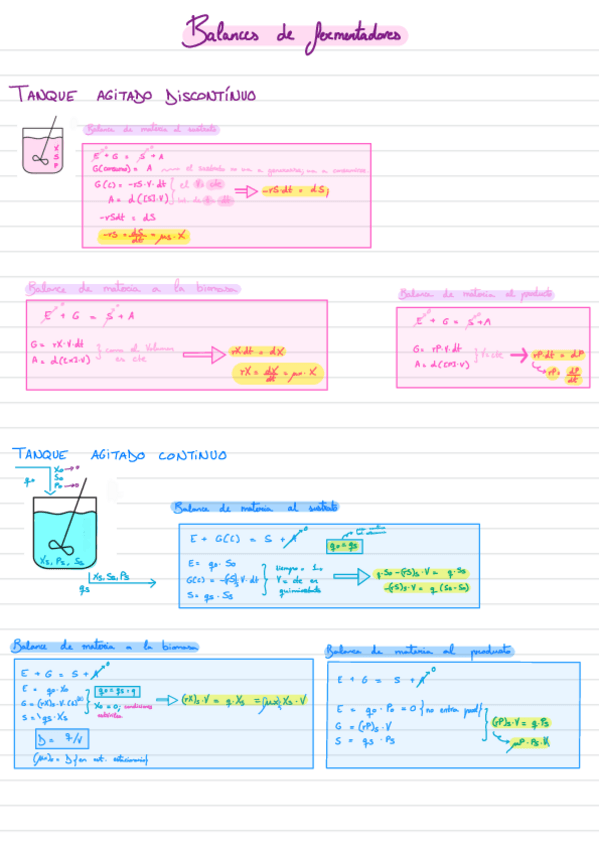 Balances de fermentadores
TANQUE AGITADO DISCONTÍNUO
X
S
P
Balance de materia al sustrato
E + G = S + A
G(consumo) = A
G(C) = -rS·V·dt } el V = cte
A = d([S]·V)
-rS·dt = dS
-rSdt = dS
-rS = dS/dt = μs·X
Balance de materia a la biomasa
E + G = S + A
G = rX·V·dt
A = d([X]·V)
} como el Volumen es cte
rXdt = dX
rX = dX/dt = μ·X
Balance de materia al producto
E + G = S + A
G = rP·V·dt
A = d([P]·V)
} V = cte
rP·dt = dP
rP = dP/dt
TANQUE AGITADO CONTINUO
q₀
X₀ → 0
S₀
P₀ → 0
Xs, Ps, Ss
Xs, Ss, Ps
qs
Balance de materia al sustrato
E + G(C) = S + A
q₀ = qs
E = q₀·S₀
G(C) = -(rS)s·V·dt
S = qs·Ss
q·S₀ - (rS)s·V = q·Ss
-(rS)s·V = q (Ss - S₀)
Balance de materia a la biomasa
E + G = S + A
E = q₀·X₀
q₀ = qs = q
G = (rX)s·V
X₀ = 0, condiciones
S = qs·Xs
(rX)s·V = q·Xs = (μx)s·Xs·V
D = q/V
(μx)s = D } en est. estacionario
Balance de materia al producto
E + G = S + A
E = q₀·P₀ = 0 } no entra prod
G = (rP)s·V
S = qs·Ps
(rP)s·V = q·Ps